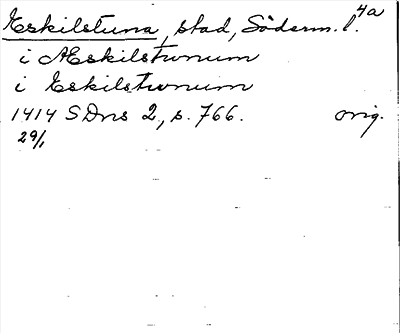 Eskilstuna, stad, Söderm. l. 4a
i Æskilstwnum
i Eskilstwnum
1414 SDns 2, s. 766. orig.
29/1